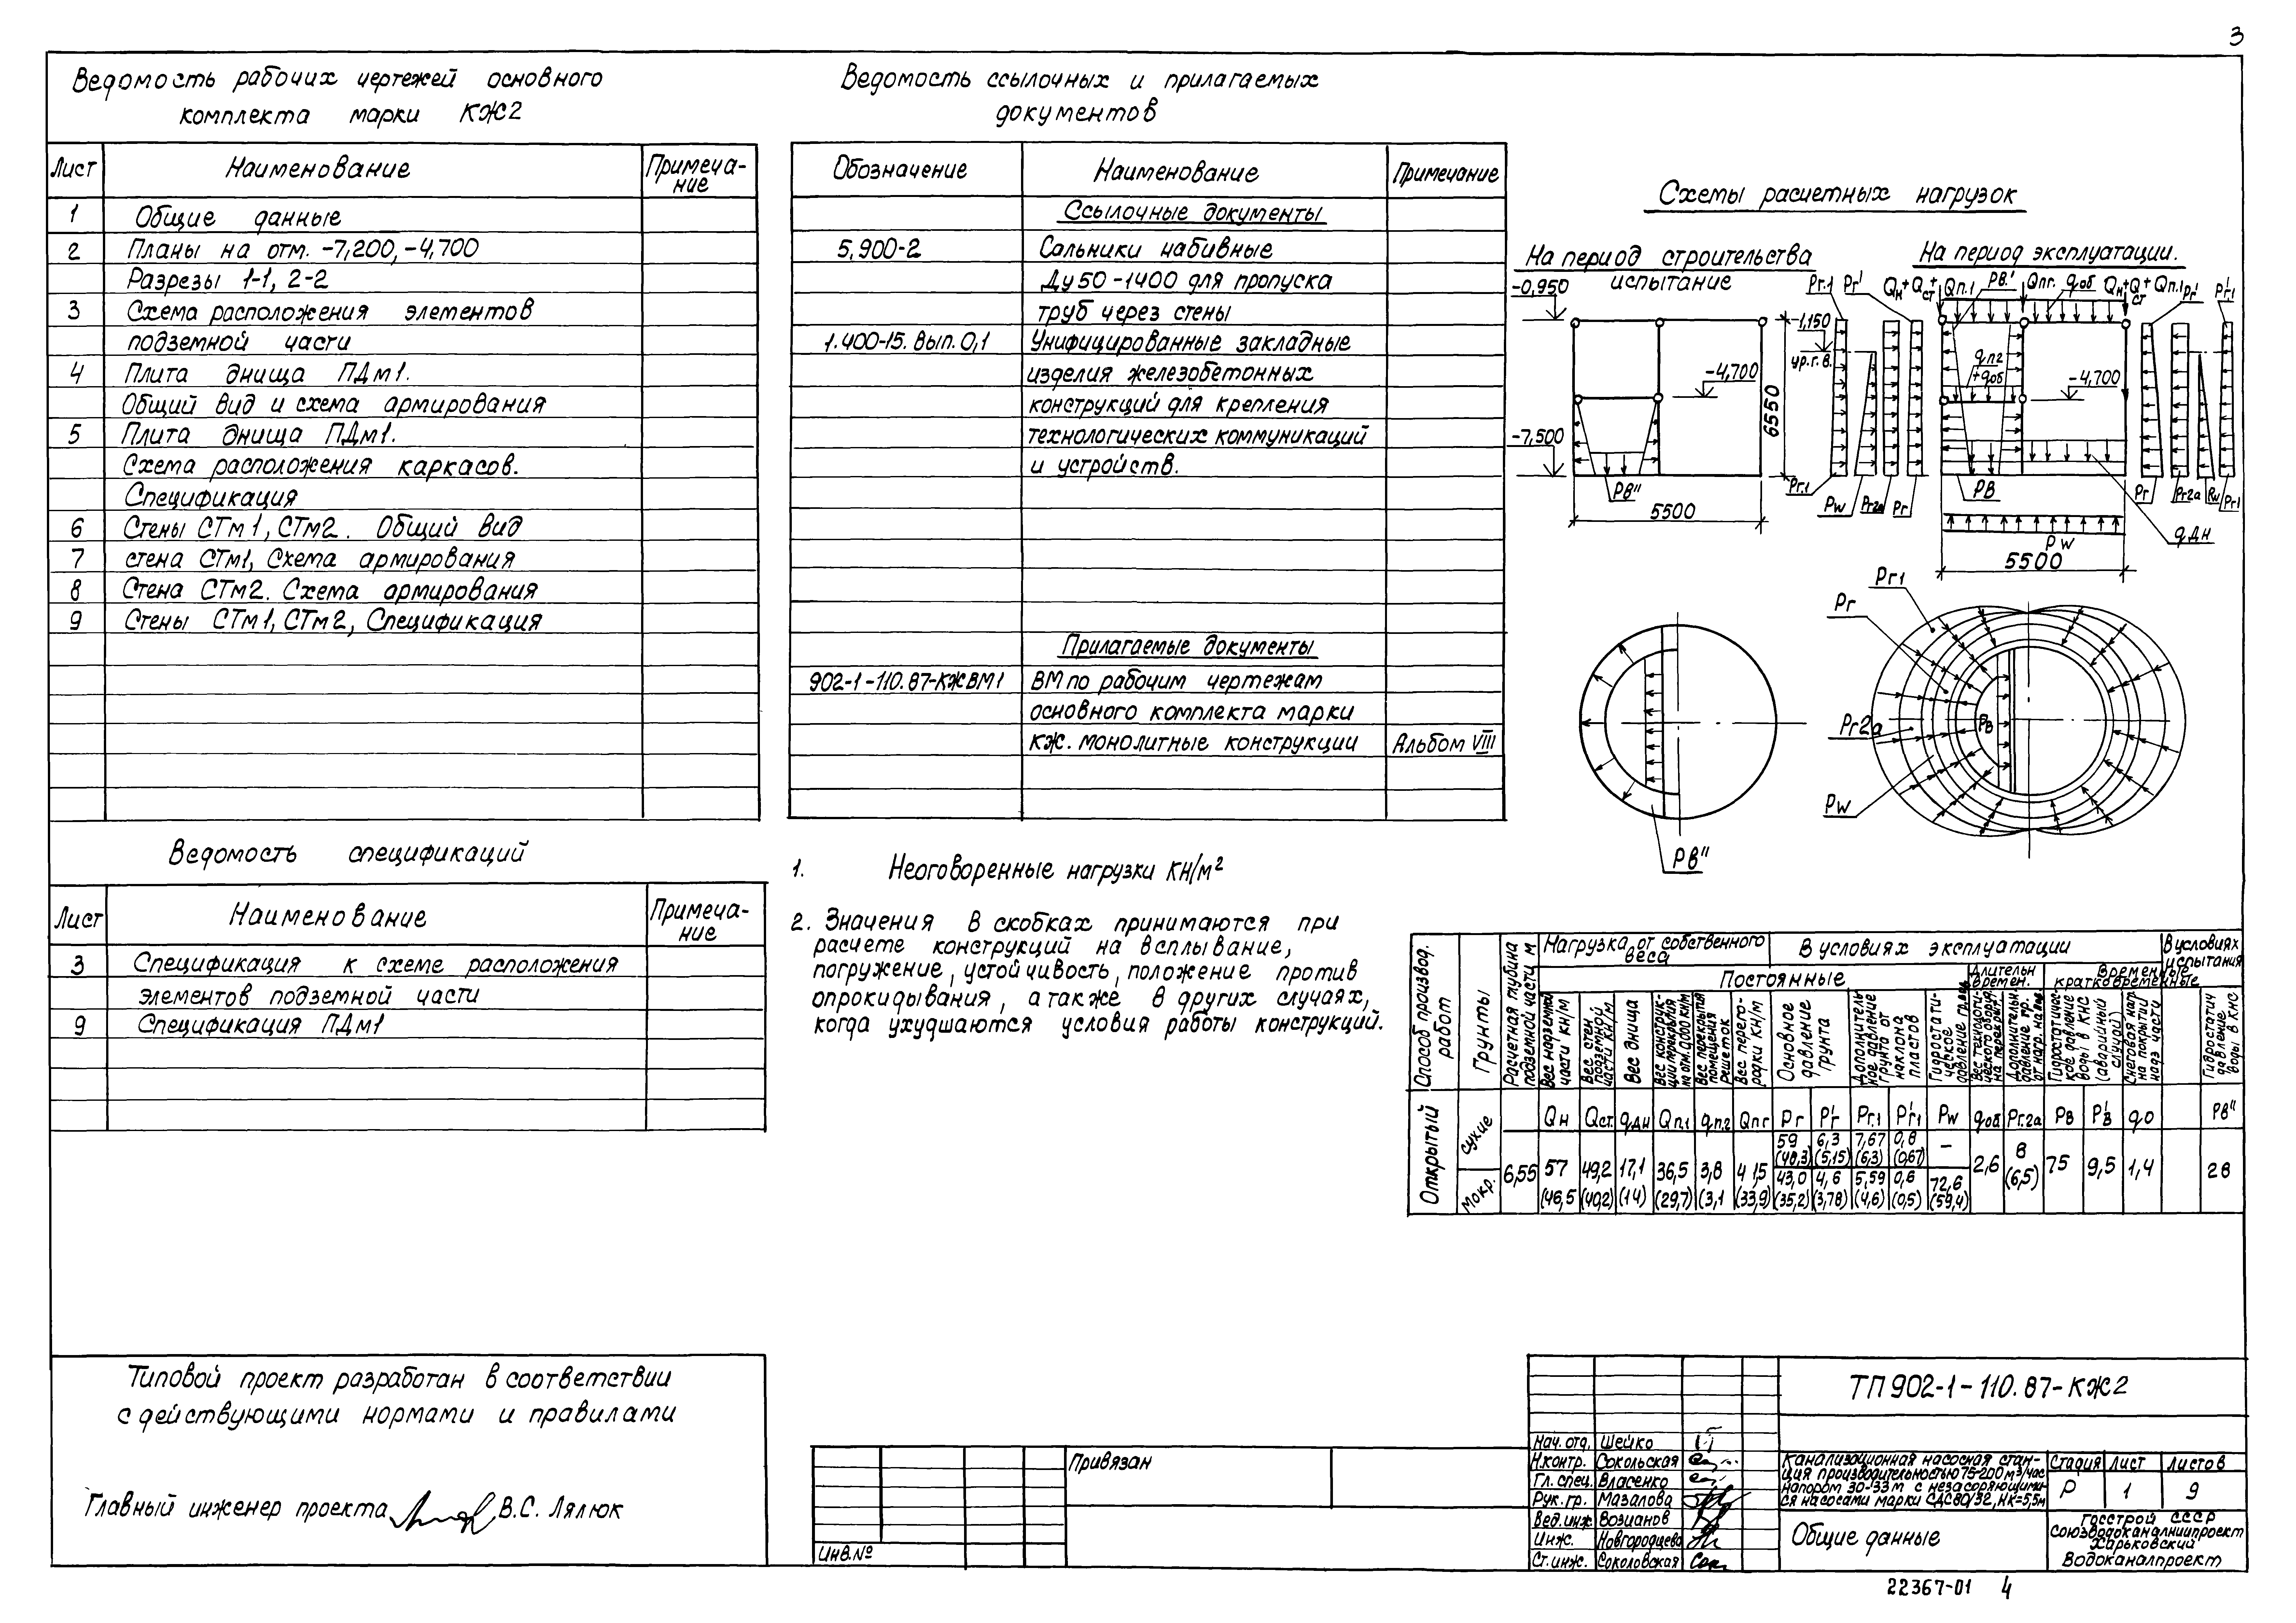 3
Ведомость рабочих чертежей основного
комплекта марки КЖ2
Лист Наименование Примеча-
ние
1 Общие данные
2 Планы на отм. -7,200, -4,700
Разрезы 1-1, 2-2
3 Схема расположения элементов
подземной части
4 Плита днища ПДм1.
Общий вид и схема армирования
5 Плита днища ПДм1.
Схема расположения каркасов.
Спецификация
6 Стены СТм1, СТм2. Общий вид
7 стена СТм1, Схема армирования
8 Стена СТм2. Схема армирования
9 Стены СТм1, СТм2, Спецификация
Ведомость спецификаций
Лист Наименование Примеча-
ние
3 Спецификация к схеме расположения
элементов подземной части
9 Спецификация ПДм1
Типовой проект разработан в соответствии
с действующими нормами и правилами
Главный инженер проекта В.С. Лялюк
Ведомость ссылочных и прилагаемых
документов
Обозначение Наименование Примечание
Ссылочные документы
5.900-2 Сальники набивные
Ду 50-1400 для пропуска
труб через стены
1.400-15. Вып. 0,1 Унифицированные закладные
изделия железобетонных
конструкций для крепления
технологических коммуникаций
и устройств.
Прилагаемые документы
902-1-110.87-КЖВМ1 ВМ по рабочим чертежам
основного комплекта марки
КЖ. монолитные конструкции Альбом VIII
1. Неоговоренные нагрузки КН/м²
2. Значения в скобках принимаются при
расчете конструкций на всплывание,
погружение, устойчивость, положение против
опрокидывания, а также в других случаях,
когда ухудшаются условия работы конструкций.
Схемы расчетных нагрузок
На период строительства
испытание
-0,950
-4,700
-7,500
6550
Рв"
5500
На период эксплуатации.
Рг.1 Рг' Qн+Qст+Qп.1 Рв' Qпг. qоб Qн+Qст+Qп.1 Рг' Рг1'
-1,150
ур.г.в.
qп2
+qоб
-4,700
Рг.1 Рw Рг2а Рг Рв Рг Рг2а Рw Рг1
qдн
Рw
5500
Рв"
Рг1
Рг
Рг2а
Рв
Рw
Способ производ. работ
Грунты
Расчетная глубина подземной части м
Нагрузка от собственного
веса
В условиях эксплуатации
В условиях
испытания
Постоянные
Длительн
времен.
Временные
кратковременные
Вес надземной части КН/м
Вес стен подземной части КН/м
Вес днища
Вес конструкции перекрытия на отм. 0,000 КН/м
Вес перекрытия помещения решеток
Вес перегородки КН/м
Основное давление грунта
Дополнительное давление грунта от наклона пластов
Гидростатическое давление гр.вод
Вес технологического оборуд. на перекрыт.
Дополнительн. давление гр. от нагр. на пов.
Гидростатическое давление воды в КНС
(аварийный случай)
Снеговая наг. на покрытии надз части
Гидростатич давление воды в КНС
Qн Qст. qдн Qп.1 qп.2 Qпг Рг Рг' Рг.1 Рг1' Рw qоб Рг.2а Рв Рв' q0 Рв"
Открытый
сухие 59 (48,3) 6,3 (5,15) 7,67 (6,3) 0,8 (0,67) –
6,55 57 (46,5 49,2 (40,2) 17,1 (14) 36,5 (29,7) 3,8 (3,1 4 1,5 (33,9) 2,6 8 (6,5) 75 9,5 1,4 28
мокр. 43,0 (35,2) 4,6 (3,78) 5,59 (4,6) 0,6 (0,5) 72,6 (59,4)
Привязан
Инв.№
ТП 902-1-110.87-КЖ2
Нач. отд. Шейко
Н.контр. Сокольская
Гл. спец. Власенко
Рук. гр. Мазалова
Вед. инж Возианов
Инж. Новгородцева
Ст. инж. Соколовская
Канализационная насосная стан-
ция производительностью 75-200 м³/час
напором 30-33 м с незасоряющими-
ся насосами марки СДС 80/32, Нк=5,5м
Стадия Лист Листов
Р 1 9
Общие данные
Госстрой СССР
Союзводоканалниипроект
Харьковский
Водоканалпроект
22367-01 4